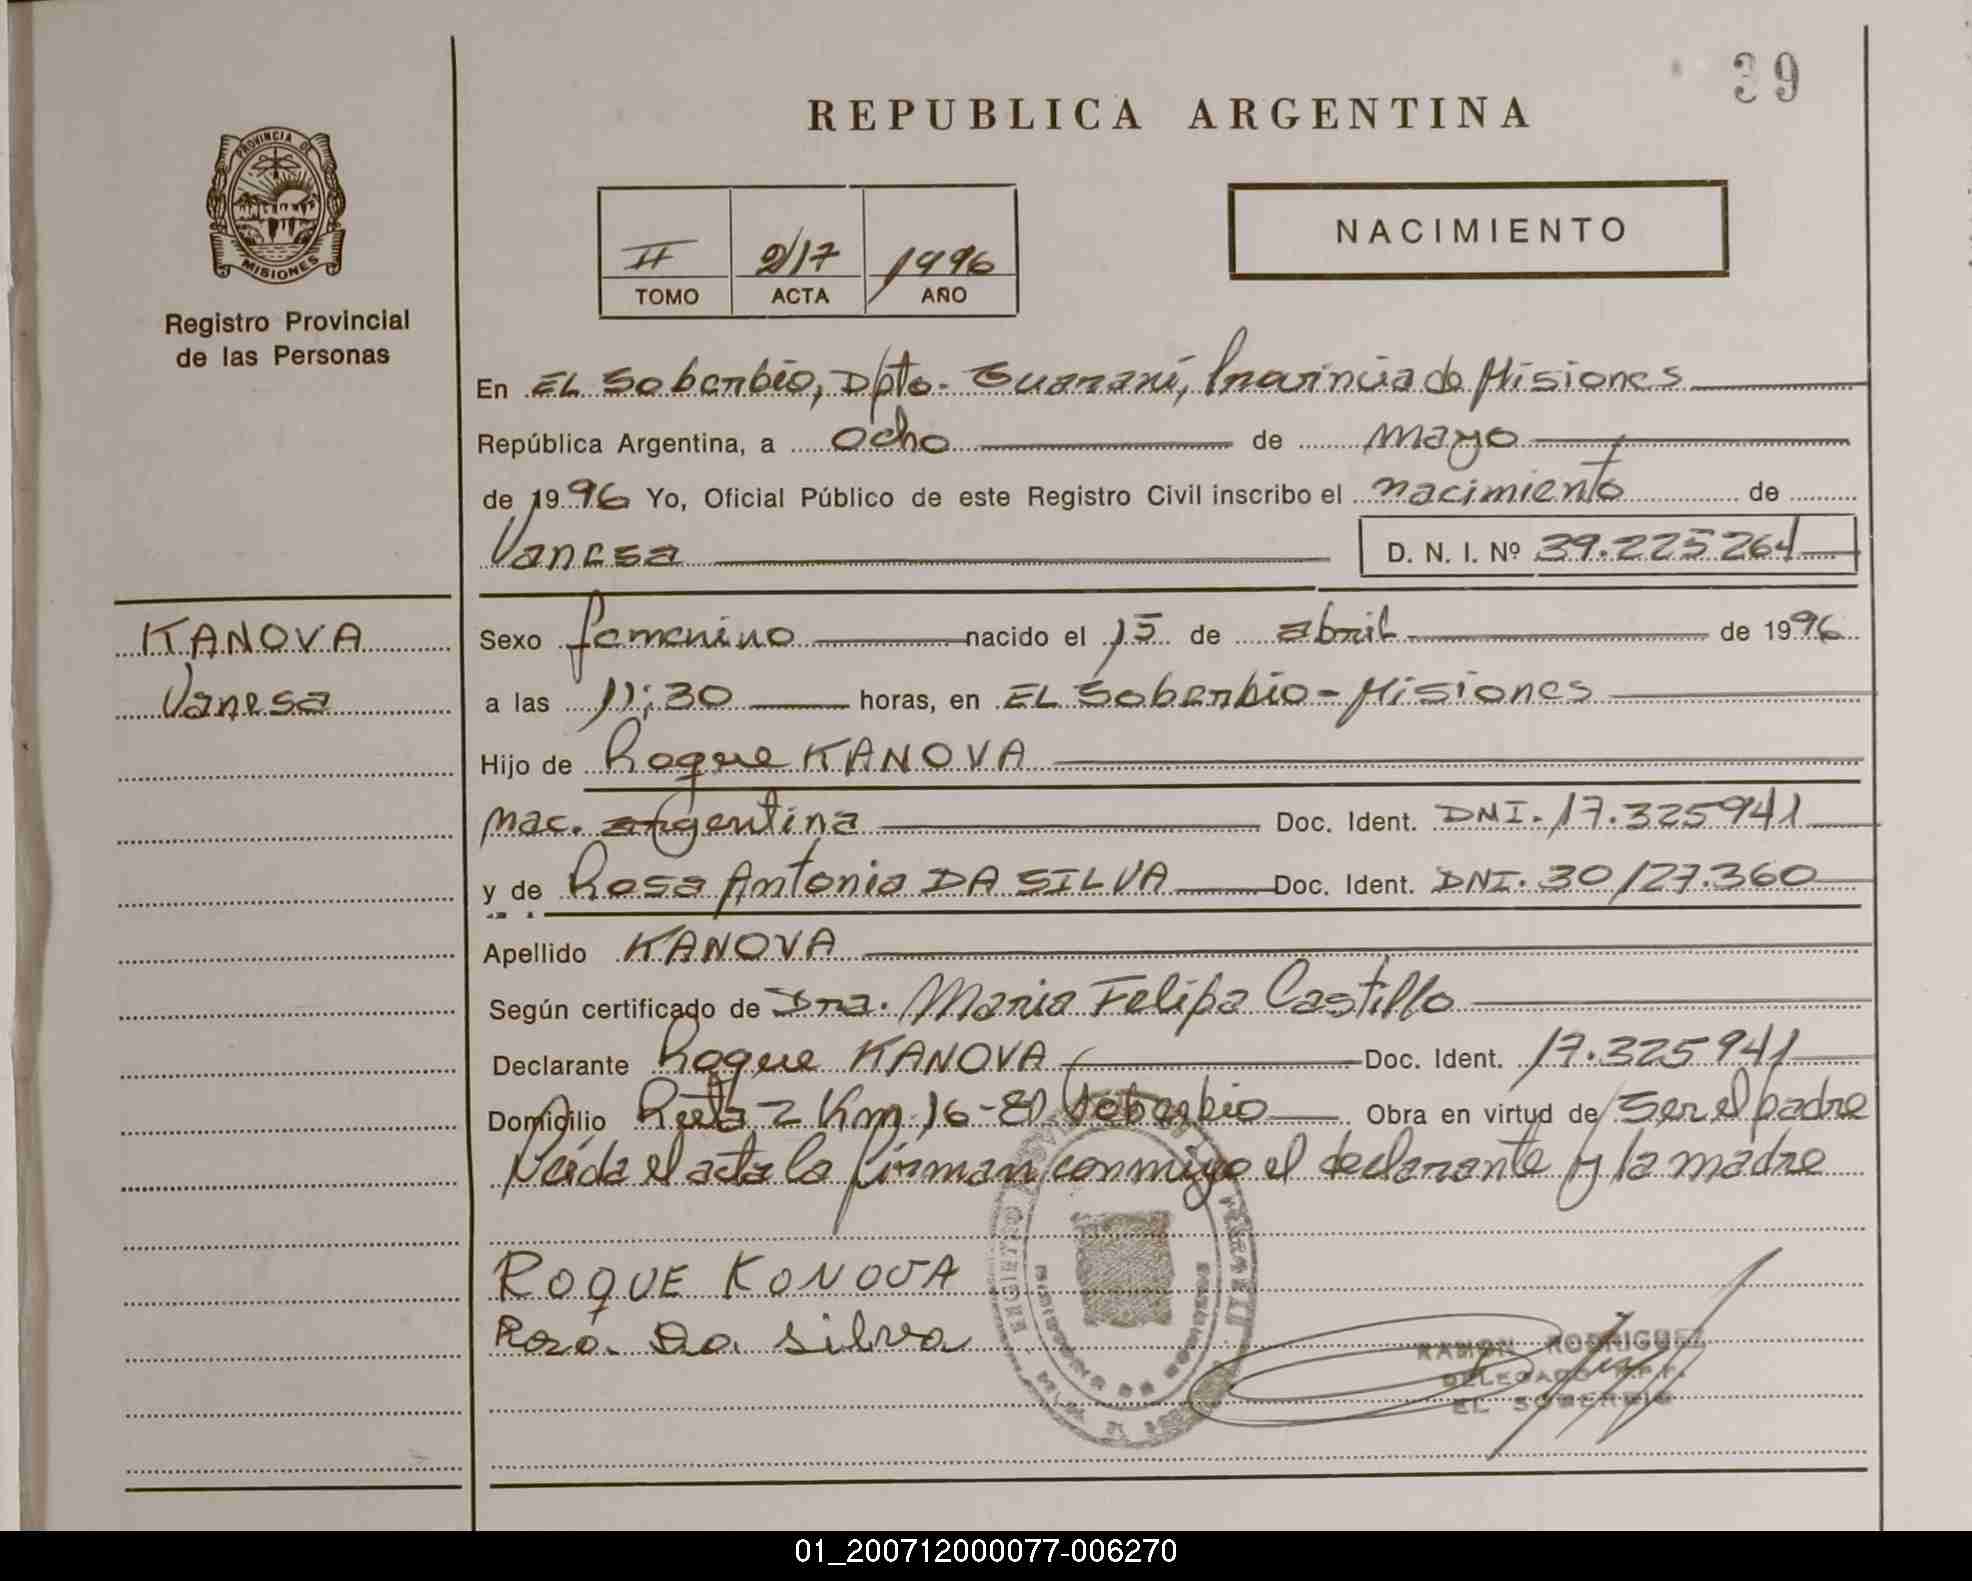 39
REPUBLICA ARGENTINA
PROVINCIA DE
MISIONES
Registro Provincial
de las Personas
II 217 1996
TOMO ACTA AÑO
NACIMIENTO
En EL Soberbio, Dpto. Guaraní, Provincia de Misiones
República Argentina, a ocho de mayo
de 1996 Yo, Oficial Público de este Registro Civil inscribo el nacimiento de
Vanesa D. N. I. Nº 39.225264
KANOVA
Vanesa
Sexo femenino nacido el 15 de abril de 1996
a las 11:30 horas, en EL Soberbio - Misiones
Hijo de Roque KANOVA
nac. argentina Doc. Ident. DNI. 17.325941
y de Rosa Antonia DA SILVA Doc. Ident. DNI. 30/27.360
Apellido KANOVA
Según certificado de Dra. Maria Felipa Castillo
Declarante Roque KANOVA Doc. Ident. 17.325941
Domicilio Ruta 2 Km 16 - El Soberbio Obra en virtud de ser el padre
Leída el acta la firman conmigo el declarante y la madre
ROQUE KONOVA
Rosa Da silva
RAMON RODRIGUEZ
DELEGADO R.P.P.
EL SOBERBIO
01_200712000077-006270